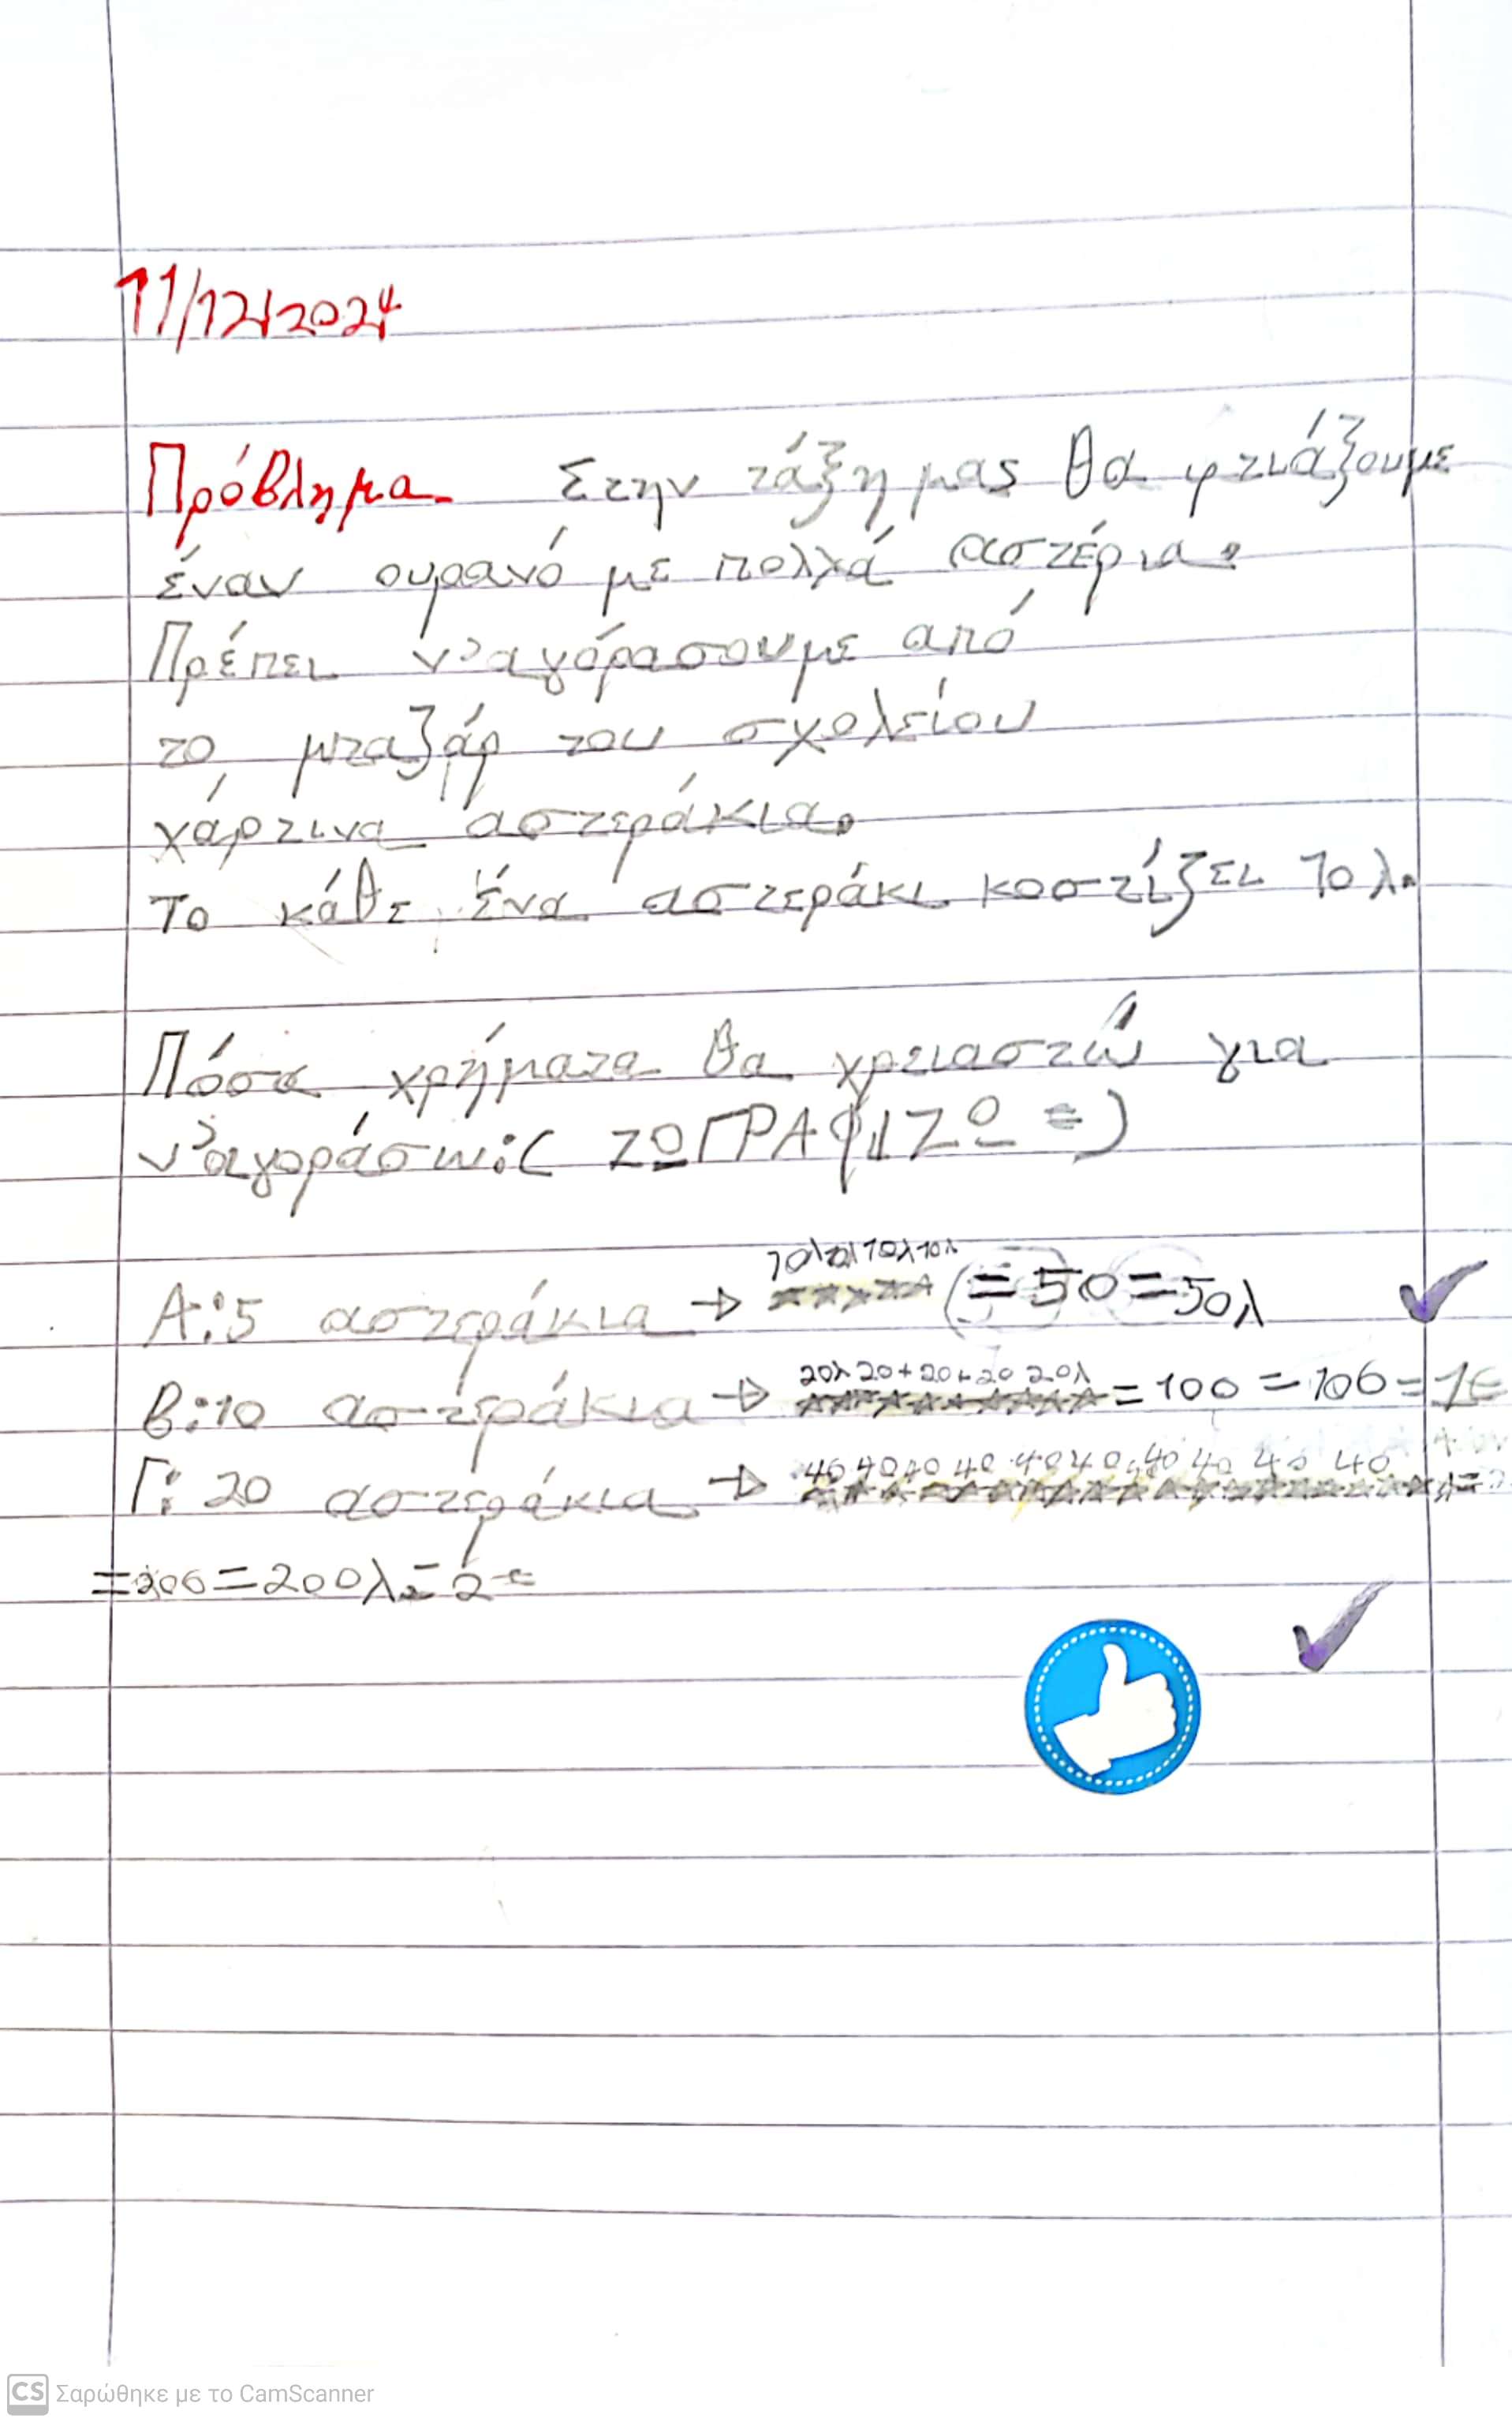 11/12/2024
Πρόβλημα Στην τάξη μας θα φτιάζουμε
έναν ουρανό με πολλά αστέρια.
Πρέπει ν'αγόρασουμε από
το μπαζάρ του σχολείου
χάρτινα αστεράκια.
Το κάθε ένα αστεράκι κοστίζει 10λ.
Πόσα χρήματα θα χρειαστώ για
ν'αγοράσω:( ΖΩΓΡΑΦΙΖΩ =)
10λ 10λ 10λ 10λ
Α:5 αστεράκια → = 50 = 50λ
20λ 20+20+20 20λ
Β:10 αστεράκια → = 100 = 100 = 1€
40 40 40 40 40 40 40 40 40 40
Γ: 20 αστεράκια → =
=200=200λ=2€
CS Σαρώθηκε με το CamScanner